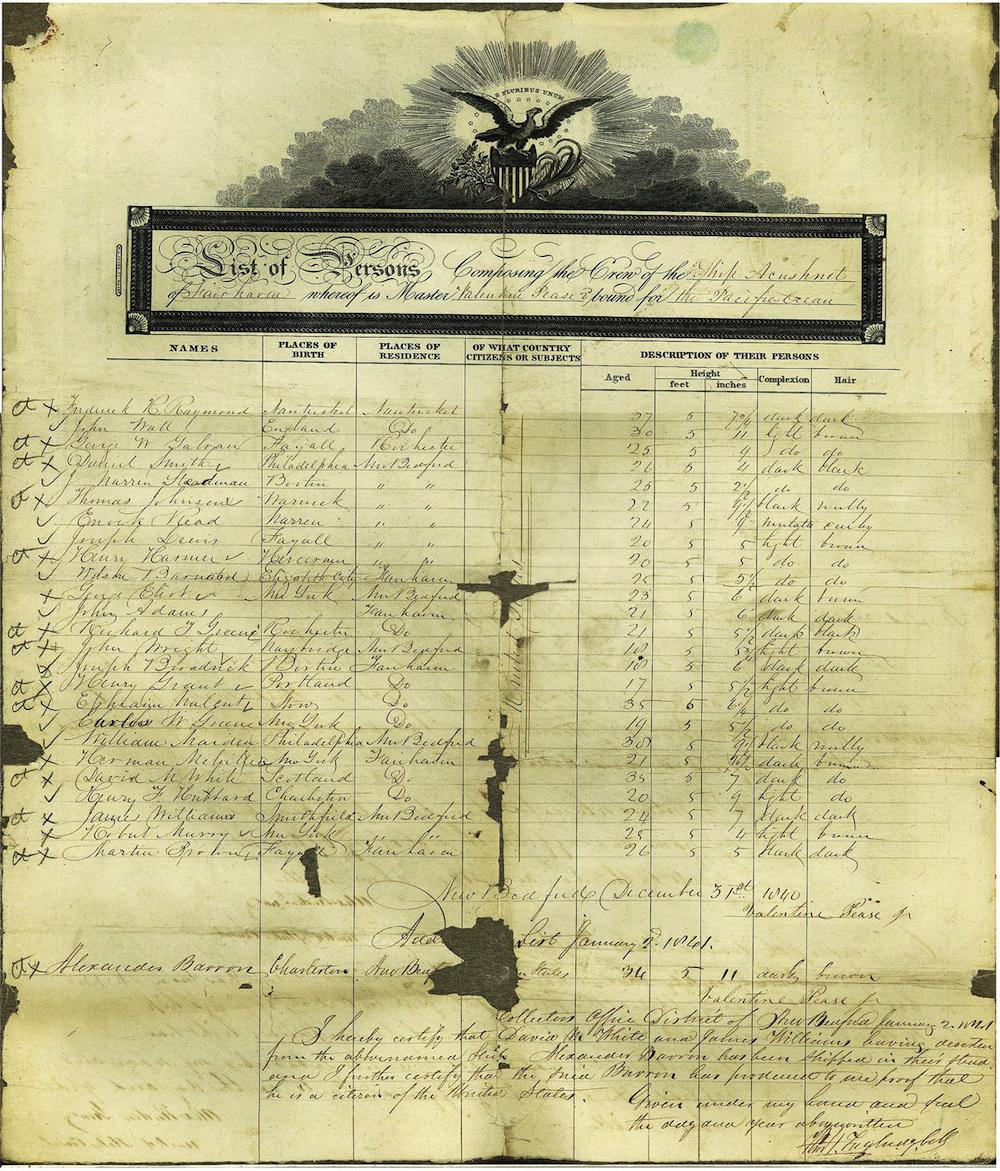 E PLURIBUS UNUM
List of Persons Composing the Crew of the Ship Acushnet
of Fairhaven whereof is Master Valentine Pease Jr bound for the Pacific Ocean
NAMES PLACES OF BIRTH PLACES OF RESIDENCE OF WHAT COUNTRY CITIZENS OR SUBJECTS DESCRIPTION OF THEIR PERSONS
Aged Height feet inches Complexion Hair
Frederick R Raymond Nantucket Nantucket 27 5 dark dark
John Wall England Do 30 5 11 light brown
George W Galvan Fayall Rochester 25 5 9 do do
Daniel Smith Philadelphia New Bedford 26 5 4 dark black
Warren Steadman Boston " " 25 5 2½ do do
Thomas Johnson Warwick " " 22 5 black wooly
Enoch Read Warren " " 24 5 mulatto curly
Joseph Lewis Fayall " " 20 5 5 light brown
Henry Harmer " " 20 5 5 do do
Wilson Barnabd Elizabeth City Fairhaven 25 5 5½ do do
George Eliot New York New Bedford 23 5 6 dark brown
John Adams Fairhaven 21 5 6 dark dark
Richard T Greene Rochester Do 21 5 5½ dark black
John Wright New Bedford 18 5 light brown
Joseph Broadrick Boston Fairhaven 5 6 dark dark
Henry Grant Portland Do 17 5 5½ light brown
Ephraim Walcott Do 35 do do
Carlos W Greene New York Do 19 5 5½ do do
William Maiden Philadelphia New Bedford 30 5 9½ black wooly
Herman Melville New York Fairhaven 21 5 9½ dark brown
David M White Scotland Do 35 5 7 dark do
Henry F Hubbard Charleston Do 20 5 9 light do
James Williams Smithfield New Bedford 24 5 7 dark dark
Robert Murry New York " " 25 5 4 light brown
Martin Brown Fayall Fairhaven 26 5 5 dark dark
United States
New Bedford December 31st 1840
Valentine Pease Jr
List January 2d 1841.
Alexander Barron Charleston New States 34 5 11 dark brown
Valentine Pease Jr
Collectors Office District of New Bedford January 2. 1841
I hereby certify that David M White and James Williams having deserted
from the abovenamed Ship Alexander Barron has been shipped in their stead
and I further certify that the said Barron has produced to me proof that
he is a citizen of the United States.
Given under my hand and seal
the day and year abovewritten